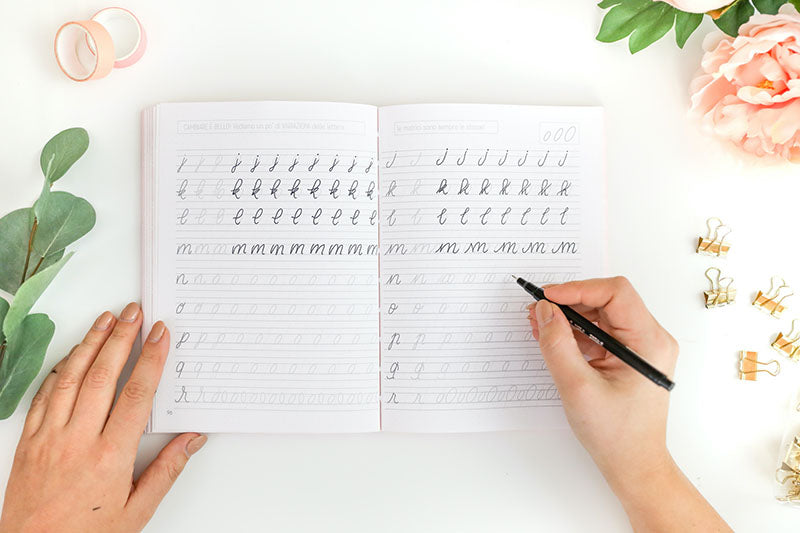 CAMBIARE È BELLO! Vediamo un po' di VARIAZIONI delle lettere
j j j j j j j j j j j
k k k k k k k k k k k
l l l l l l l l l l l
m m m m m m m m m m m
n n
o o
p p
q q
r r
le matrici sono sempre le stesse!
j j j j j j j j j
k k k k k k k k k
l l l l l l l l l
m m m m m m m
n n
o o
p p
q q
r r